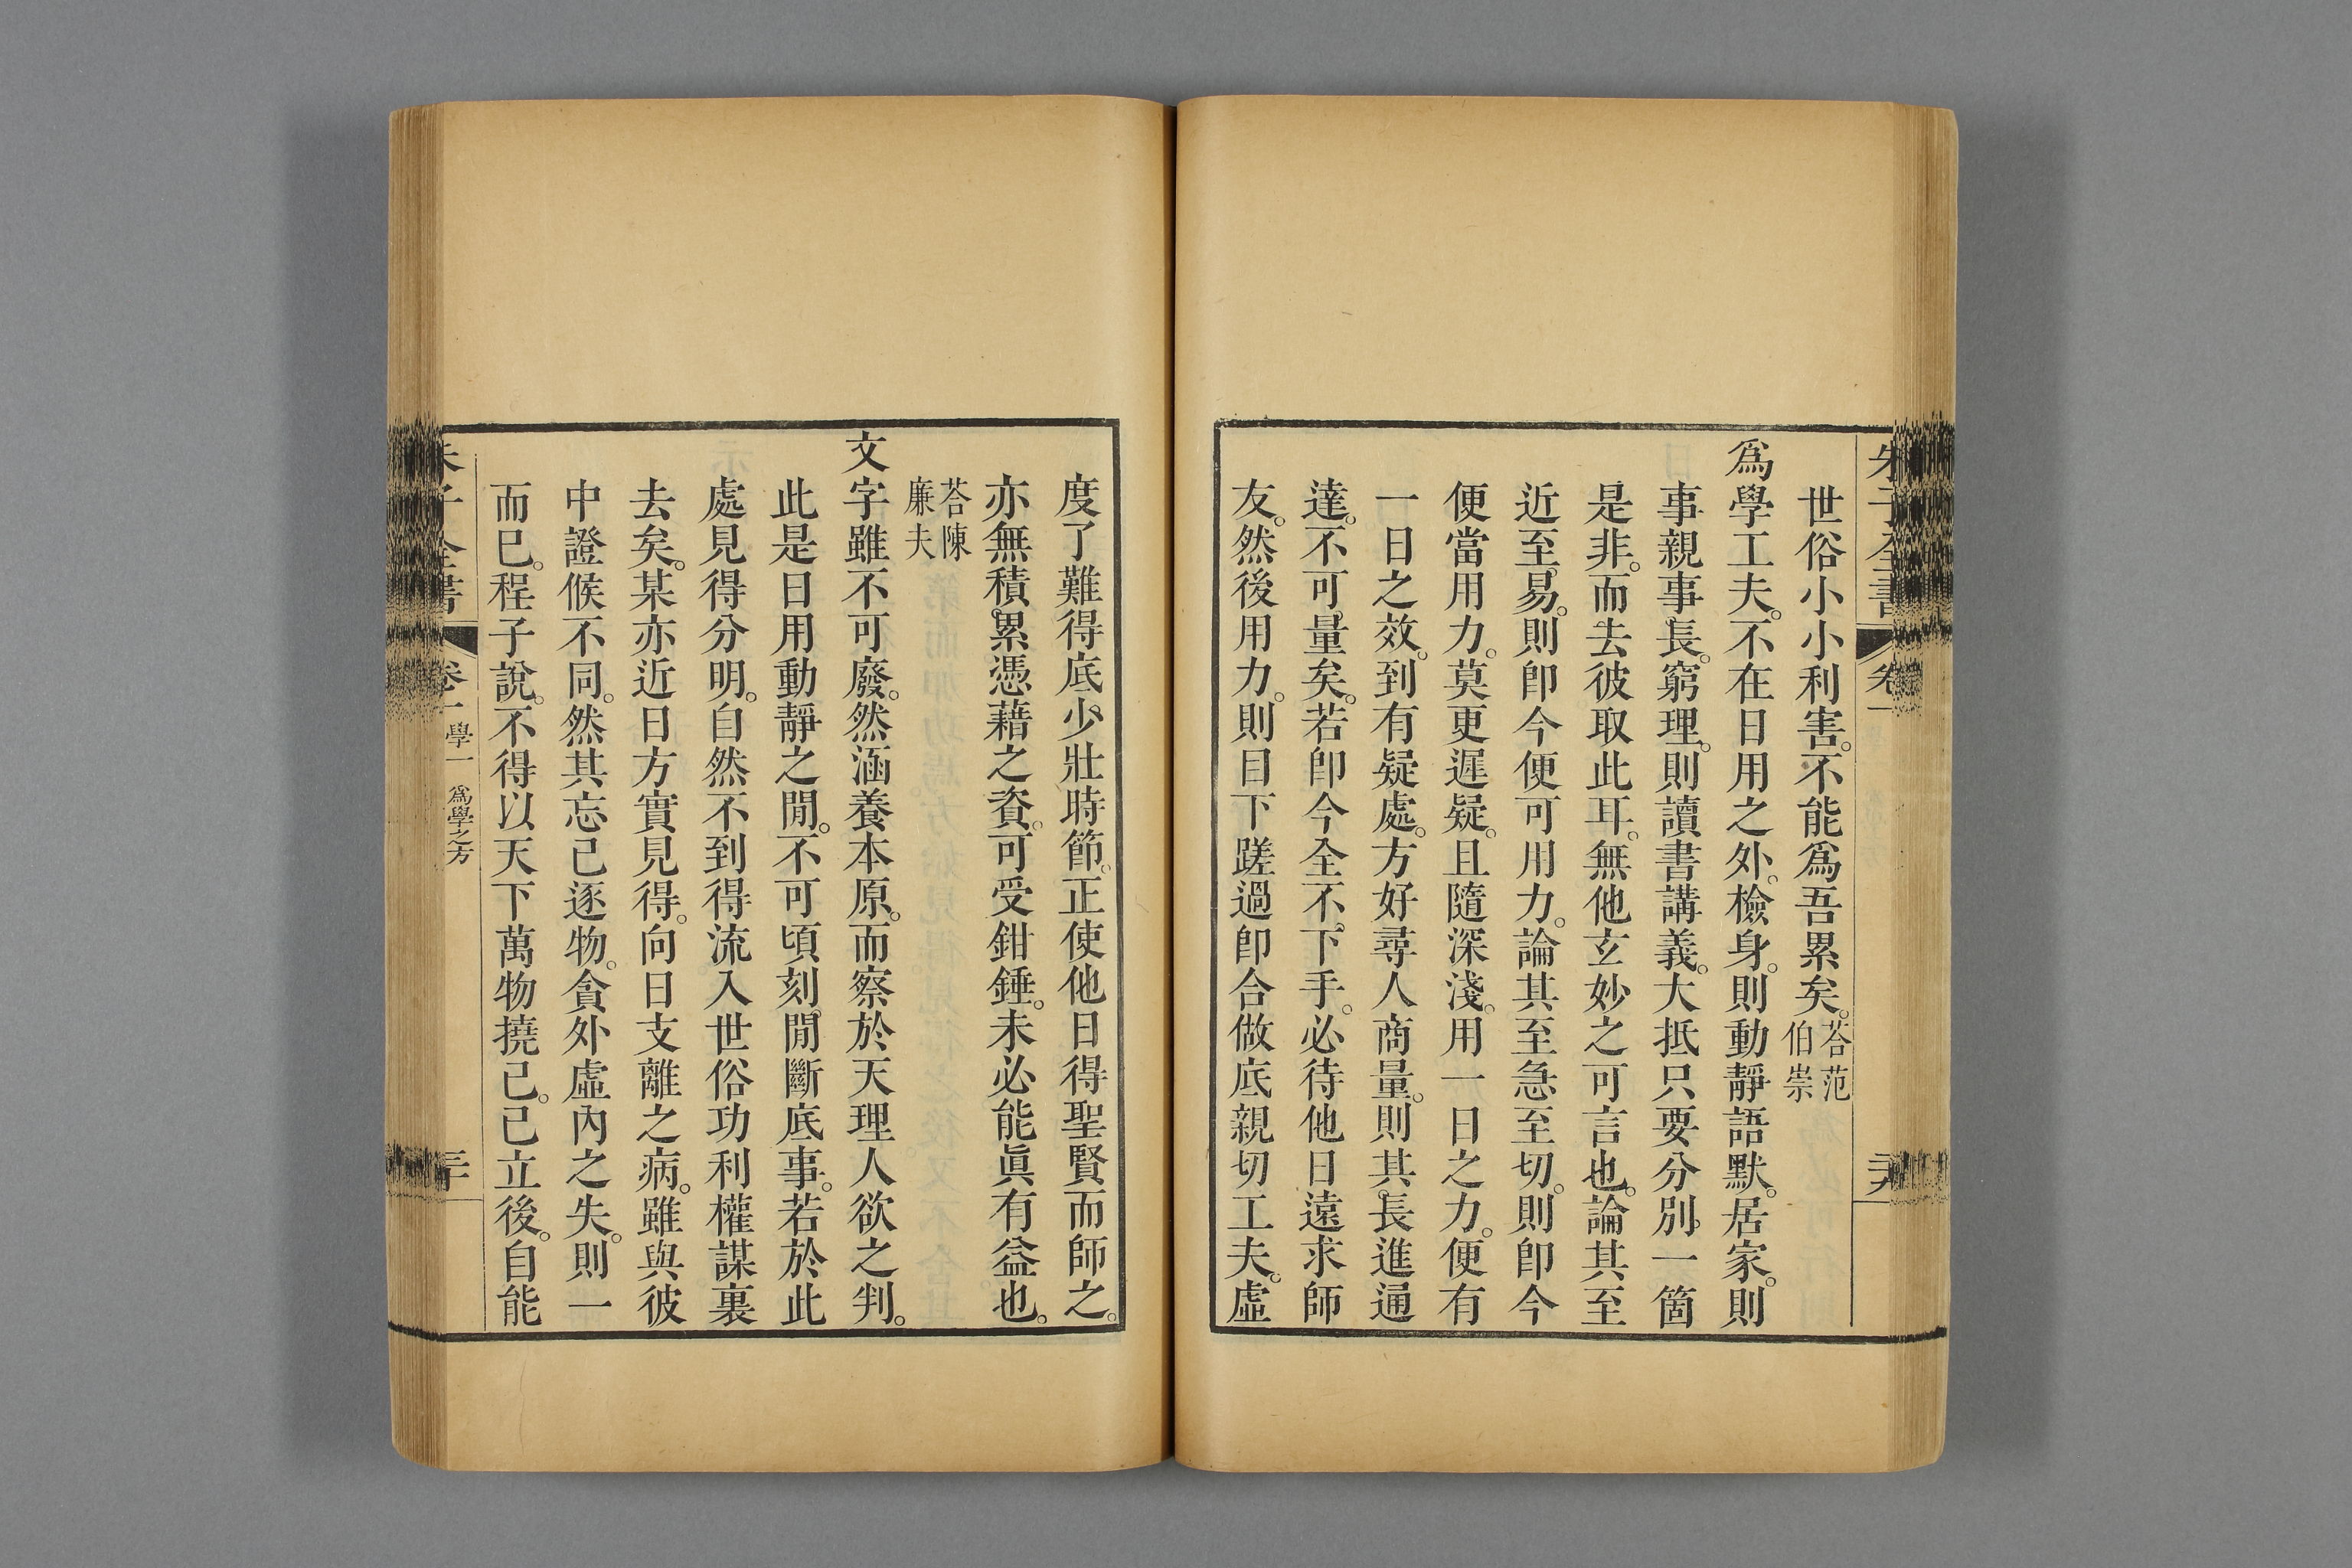 朱子全書 卷一 二十九
世俗小小利害。不能爲吾累矣。荅范伯崇
爲學工夫。不在日用之外。檢身。則動靜語默。居家。則
事親事長。窮理。則讀書講義。大抵只要分別。一箇
是非。而去彼取此耳。無他玄妙之可言也。論其至
近至易。則卽今便可用力。論其至急至切。則卽今
便當用力。莫更遲疑。且隨深淺。用一日之力。便有
一日之效。到有疑處。方好尋人商量。則其長進通
達。不可量矣。若卽今全不下手。必待他日遠求師
友。然後用力。則目下蹉過卽合做底親切工夫。虛
度了難得底少壯時節。正使他日得聖賢而師之。
亦無積累憑藉之資。可受鉗錘。未必能眞有益也。
荅陳廉夫
文字雖不可廢。然涵養本原。而察於天理人欲之判。
此是日用動靜之閒。不可頃刻閒斷底事。若於此
處見得分明。自然不到得流入世俗功利權謀裏
去矣。某亦近日方實見得。向日支離之病。雖與彼
中證候不同。然其忘己逐物。貪外虛內之失。則一
而已。程子說。不得以天下萬物撓己。己立後。自能
朱子全書 卷一 學一 爲學之方 三十